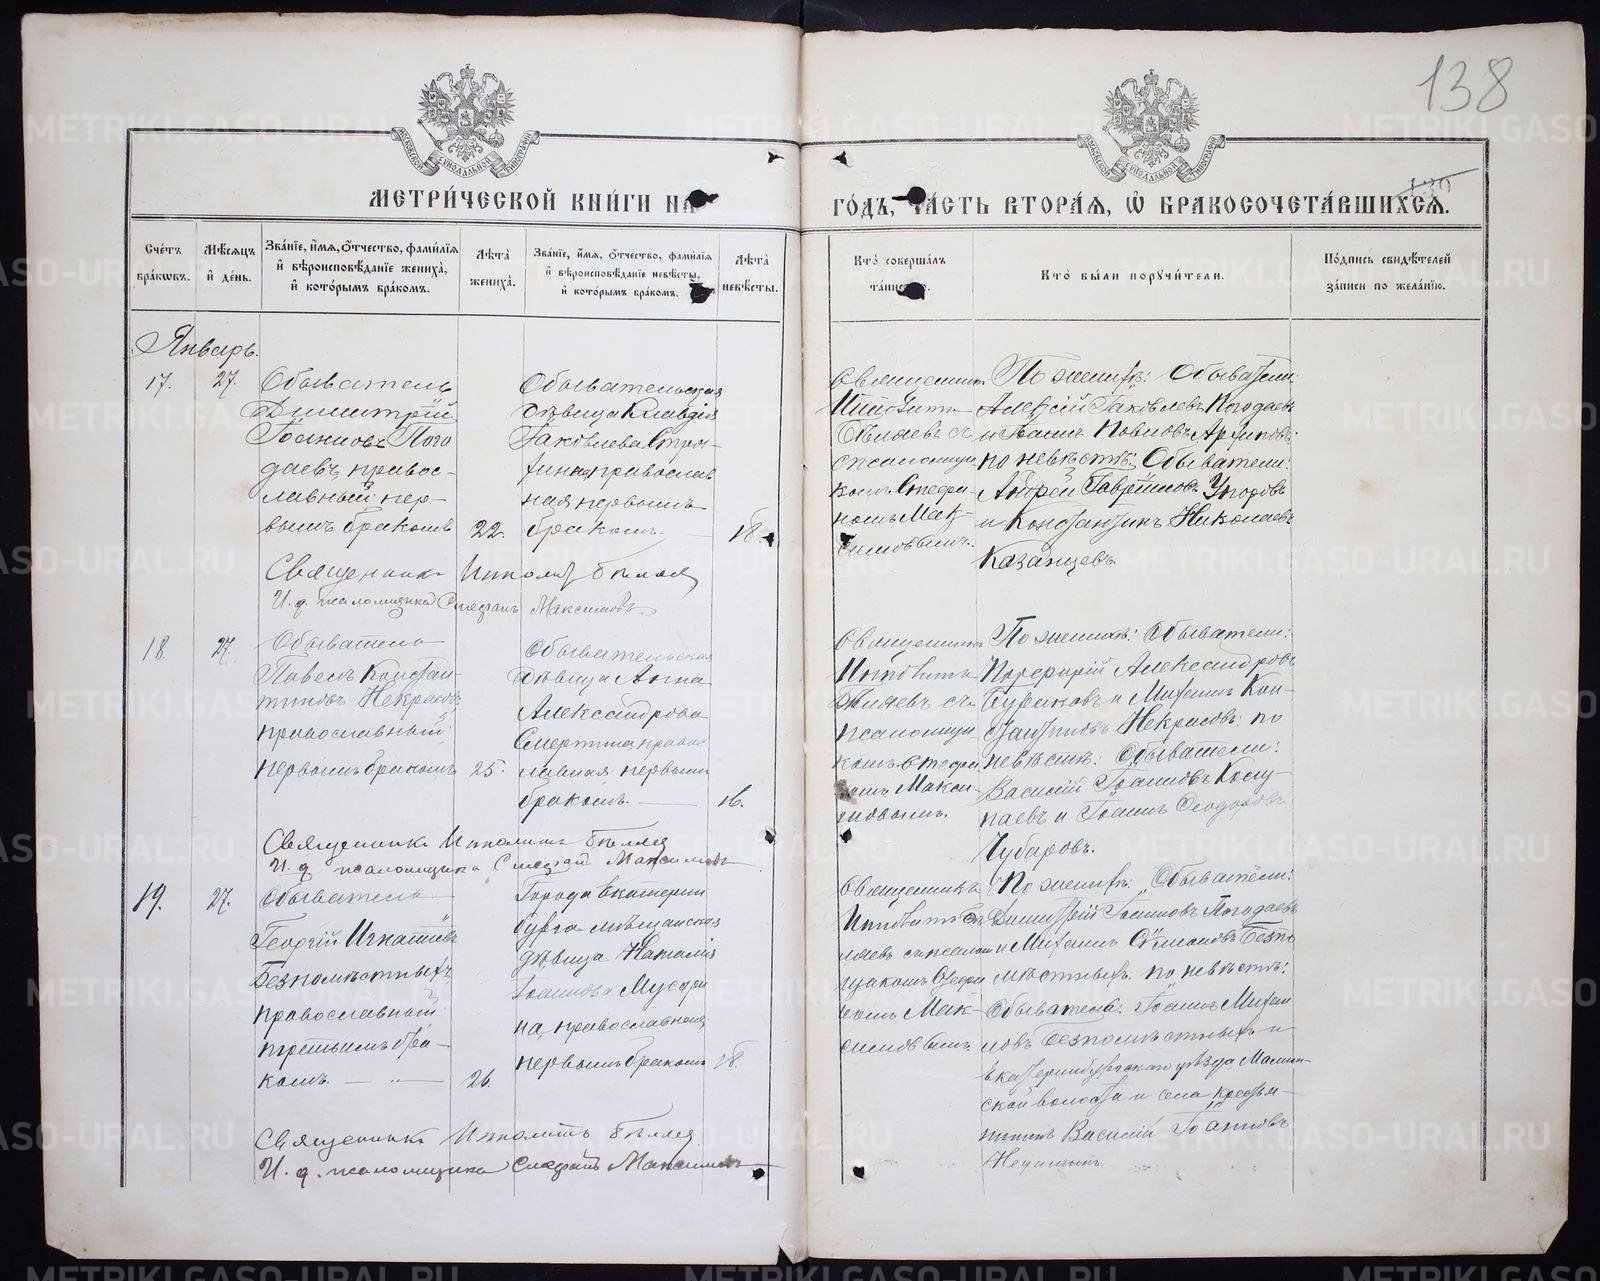 138
МОСКОВСКОЙ СѴНОДАЛЬНОЙ ТИПОГРАФІИ
МОСКОВСКОЙ СѴНОДАЛЬНОЙ ТИПОГРАФІИ
МЕТРИ́ЧЕСКОЙ КНИ́ГИ НА
ГО́ДЪ, ЧА́СТЬ ВТОРА́Я, Ѡ БРАКОСОЧЕТА́ВШИХСЯ.
Сче́тъ бра́кѡвъ.
Мѣ́сяцъ и де́нь.
Зва́нїе, и́мя, о́тчество, фами́лїя и вѣроисповѣ́данїе жениха̀, и кото́рымъ бра́комъ.
Лѣ́та жениха̀.
Зва́нїе, и́мя, о́тчество, фами́лїя и вѣроисповѣ́данїе невѣ́сты, и кото́рымъ бра́комъ.
Лѣ́та невѣ́сты.
Кто̀ соверша́лъ
Кто̀ бы́ли порꙋчи́тели.
По́дпись свидѣ́телей за́писи по жела́нїю.
Январь.
17.
27.
Обыватель
Димитрій
Іоанновъ Пого
даевъ, правос-
лавный пер-
вымъ бракомъ
22.
Обывательская
дѣвица Клавдія
Іаковлева
православ
ная первымъ
бракомъ.
18.
Священникъ
Бѣляевъ съ
псаломщи
комъ Стефа
номъ Мак-
симовымъ.
По женихѣ: Обыватели:
Алексій Іаковлевъ Погодаевъ
и Іоаннъ Павловъ Архиповъ:
по невѣстѣ: Обыватели:
Андрей Гавріиловъ Упоровъ
и Константинъ Николаевъ
Казанцевъ.
Священникъ Ипполитъ Бѣляевъ
И. д. псаломщика Стефанъ Максимовъ.
18.
27.
Обыватель
Павелъ Констан
тиновъ Некрасовъ
православный
первымъ бракомъ
25.
Обывательская
дѣвица Анна
Александрова
Смертина, правос
лавная первымъ
бракомъ.
18.
Священникъ
Ипполитъ
Бѣляевъ съ
псаломщи
комъ Стефа
номъ Макси
мовымъ.
По женихѣ: Обыватели:
Порфирій Александровъ
и Михаилъ Кон-
стантиновъ Некрасовъ: по
невѣстѣ: Обыватели:
Василій Іоанновъ
и Іоаннъ Ѳеодоровъ
Чубаровъ.
Священникъ Ипполитъ Бѣляевъ
И. д. псаломщика Стефанъ Максимовъ
19.
27.
Обыватель
Георгій Игнатіевъ
Безпомѣстныхъ
православный
третьимъ бра-
комъ.
26.
Города Екатерин
бурга мѣщанская
дѣвица Наталія
Іоаннова
на, православная
первымъ бракомъ
18.
Священникъ
Ипполитъ Бѣ
ляевъ съ псалом
щикомъ Стефа
номъ Мак-
симовымъ.
По женихѣ: Обыватели:
Димитрій Іоанновъ Погодаевъ
и Михаилъ Симеоновъ Безпо
мѣстныхъ: по невѣстѣ:
Обыватель: Іоаннъ Михаи
ловъ Безпомѣстныхъ и
Екатеринбургскаго уѣзда Мамин-
ской волости и села крестья-
нинъ Василій Іоанновъ
Священникъ Ипполитъ Бѣляевъ
И. д. псаломщика Стефанъ Максимовъ
METRIKI.GASO-URAL.RU